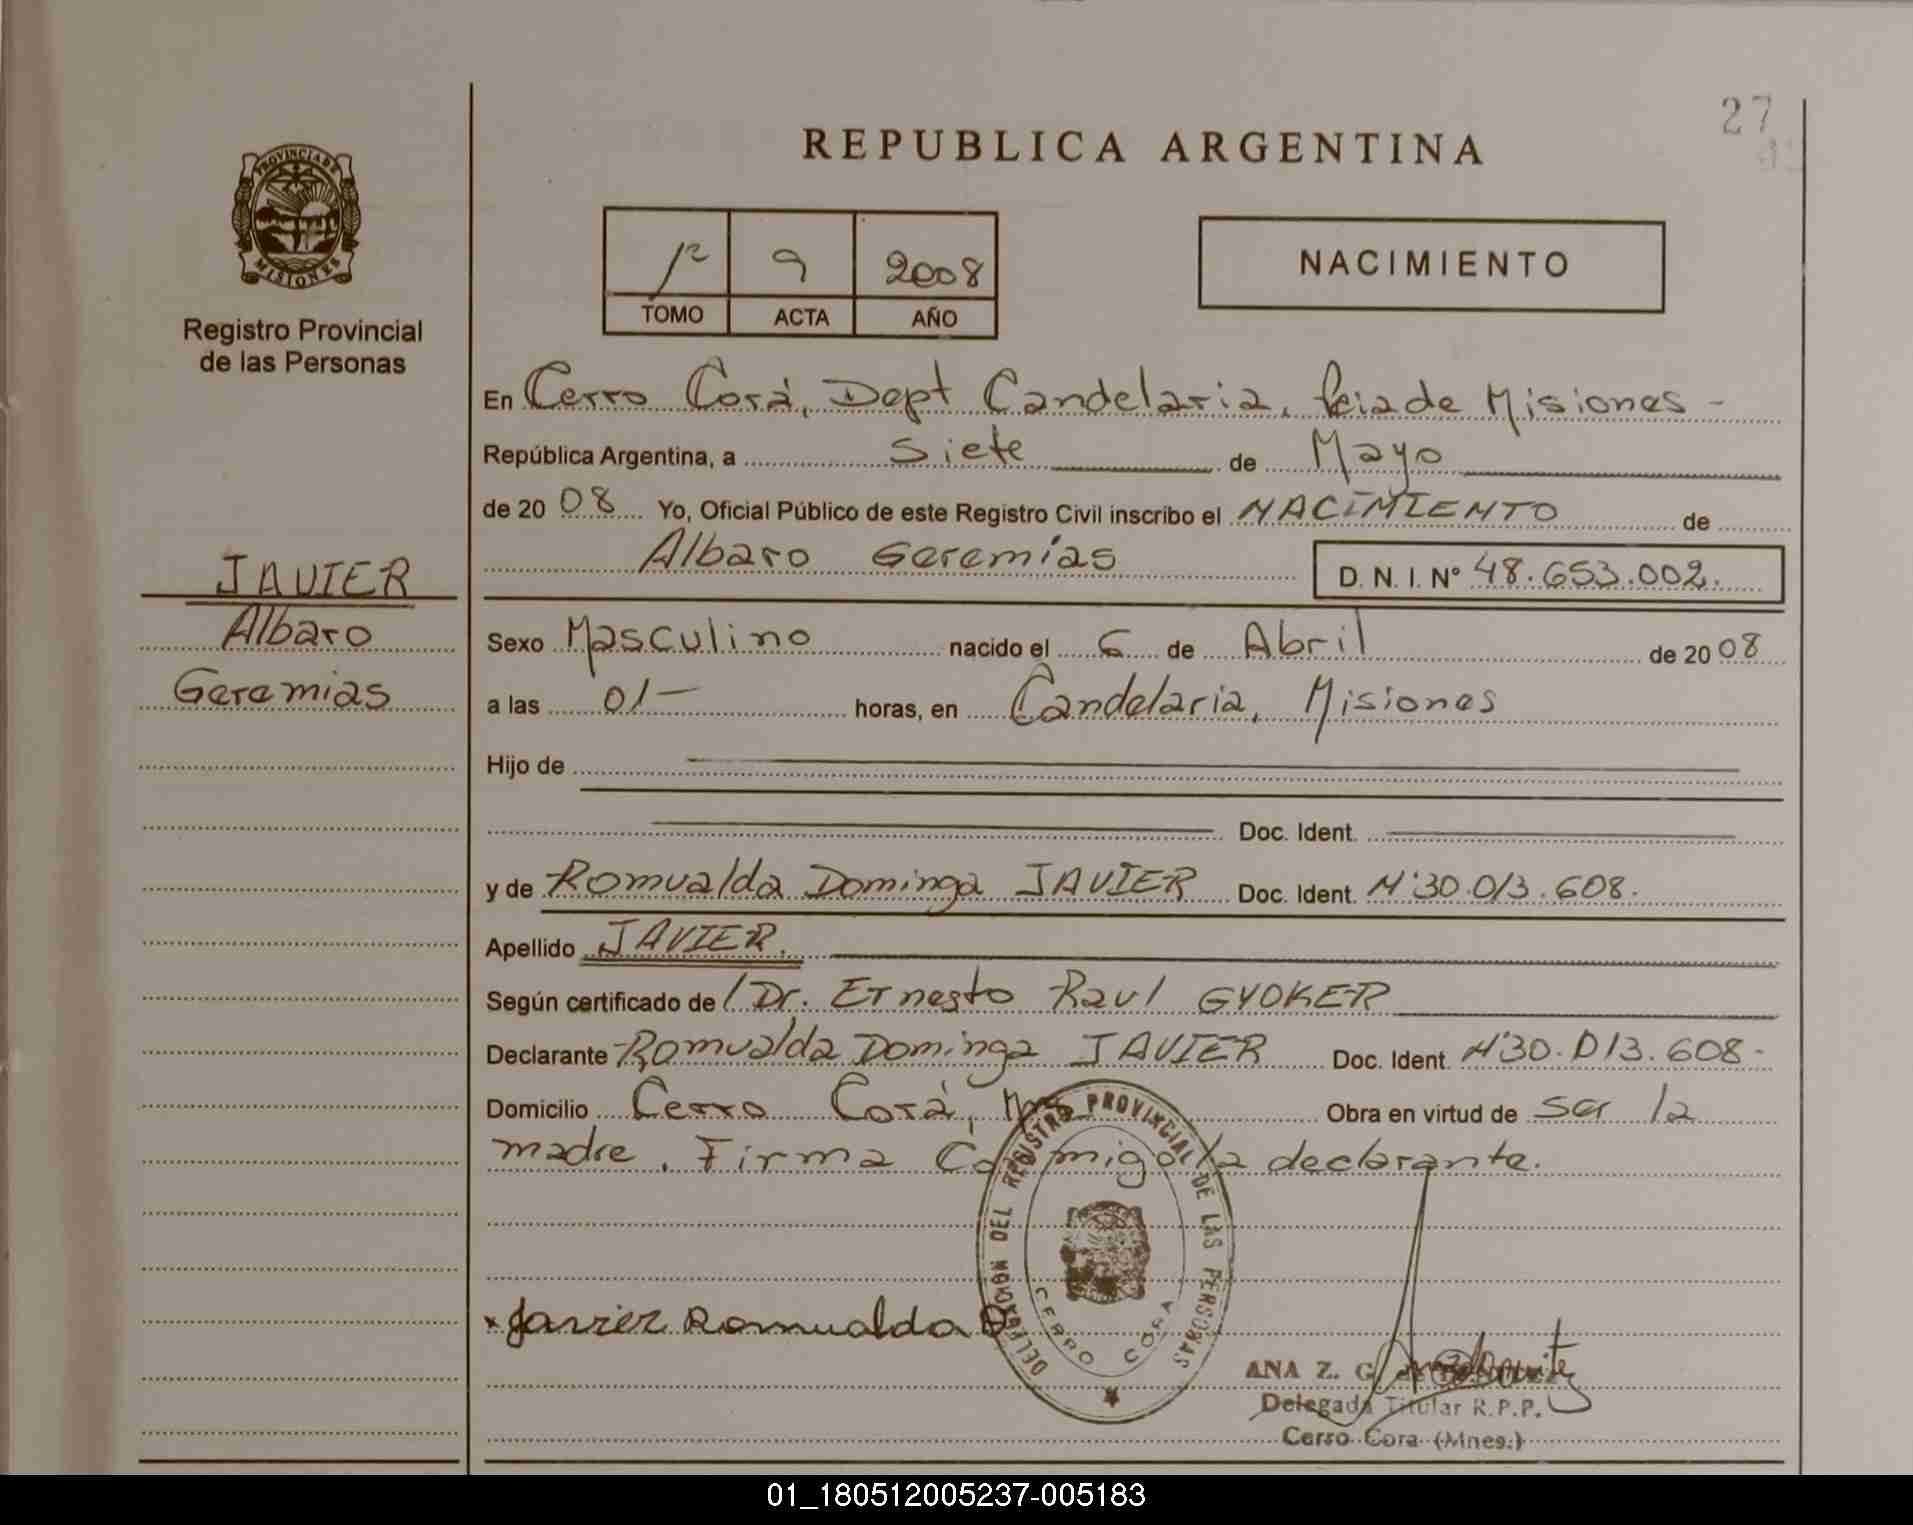 27
REPUBLICA ARGENTINA
PROVINCIA DE
MISIONES
Registro Provincial
de las Personas
1º 9 2008
TOMO ACTA AÑO
NACIMIENTO
En Cerro Corá, Dept Candelaria, Pcia de Misiones -
República Argentina, a siete de Mayo
de 20 08 Yo, Oficial Público de este Registro Civil inscribo el NACIMIENTO de
Albaro Geremías D. N. I. Nº 48.653.002.
JAVIER
Albaro
Geremias
Sexo Masculino nacido el 6 de Abril de 20 08
a las 01- horas, en Candelaria, Misiones
Hijo de
Doc. Ident.
y de Romualda Dominga JAVIER Doc. Ident. Nº30.013.608.
Apellido JAVIER.
Según certificado de / Dr. Ernesto Raul GYOKER
Declarante Romualda Dominga JAVIER Doc. Ident. Nº30.013.608-
Domicilio Cerro Corá, Mnes Obra en virtud de ser la
madre. Firma Conmigo la declarante.
Javier Romualda D
DELEGACION DEL REGISTRO PROVINCIAL DE LAS PERSONAS
CERRO CORA
ANA Z. G.
Delegada Titular R.P.P.
Cerro Cora (Mnes.)
01_180512005237-005183